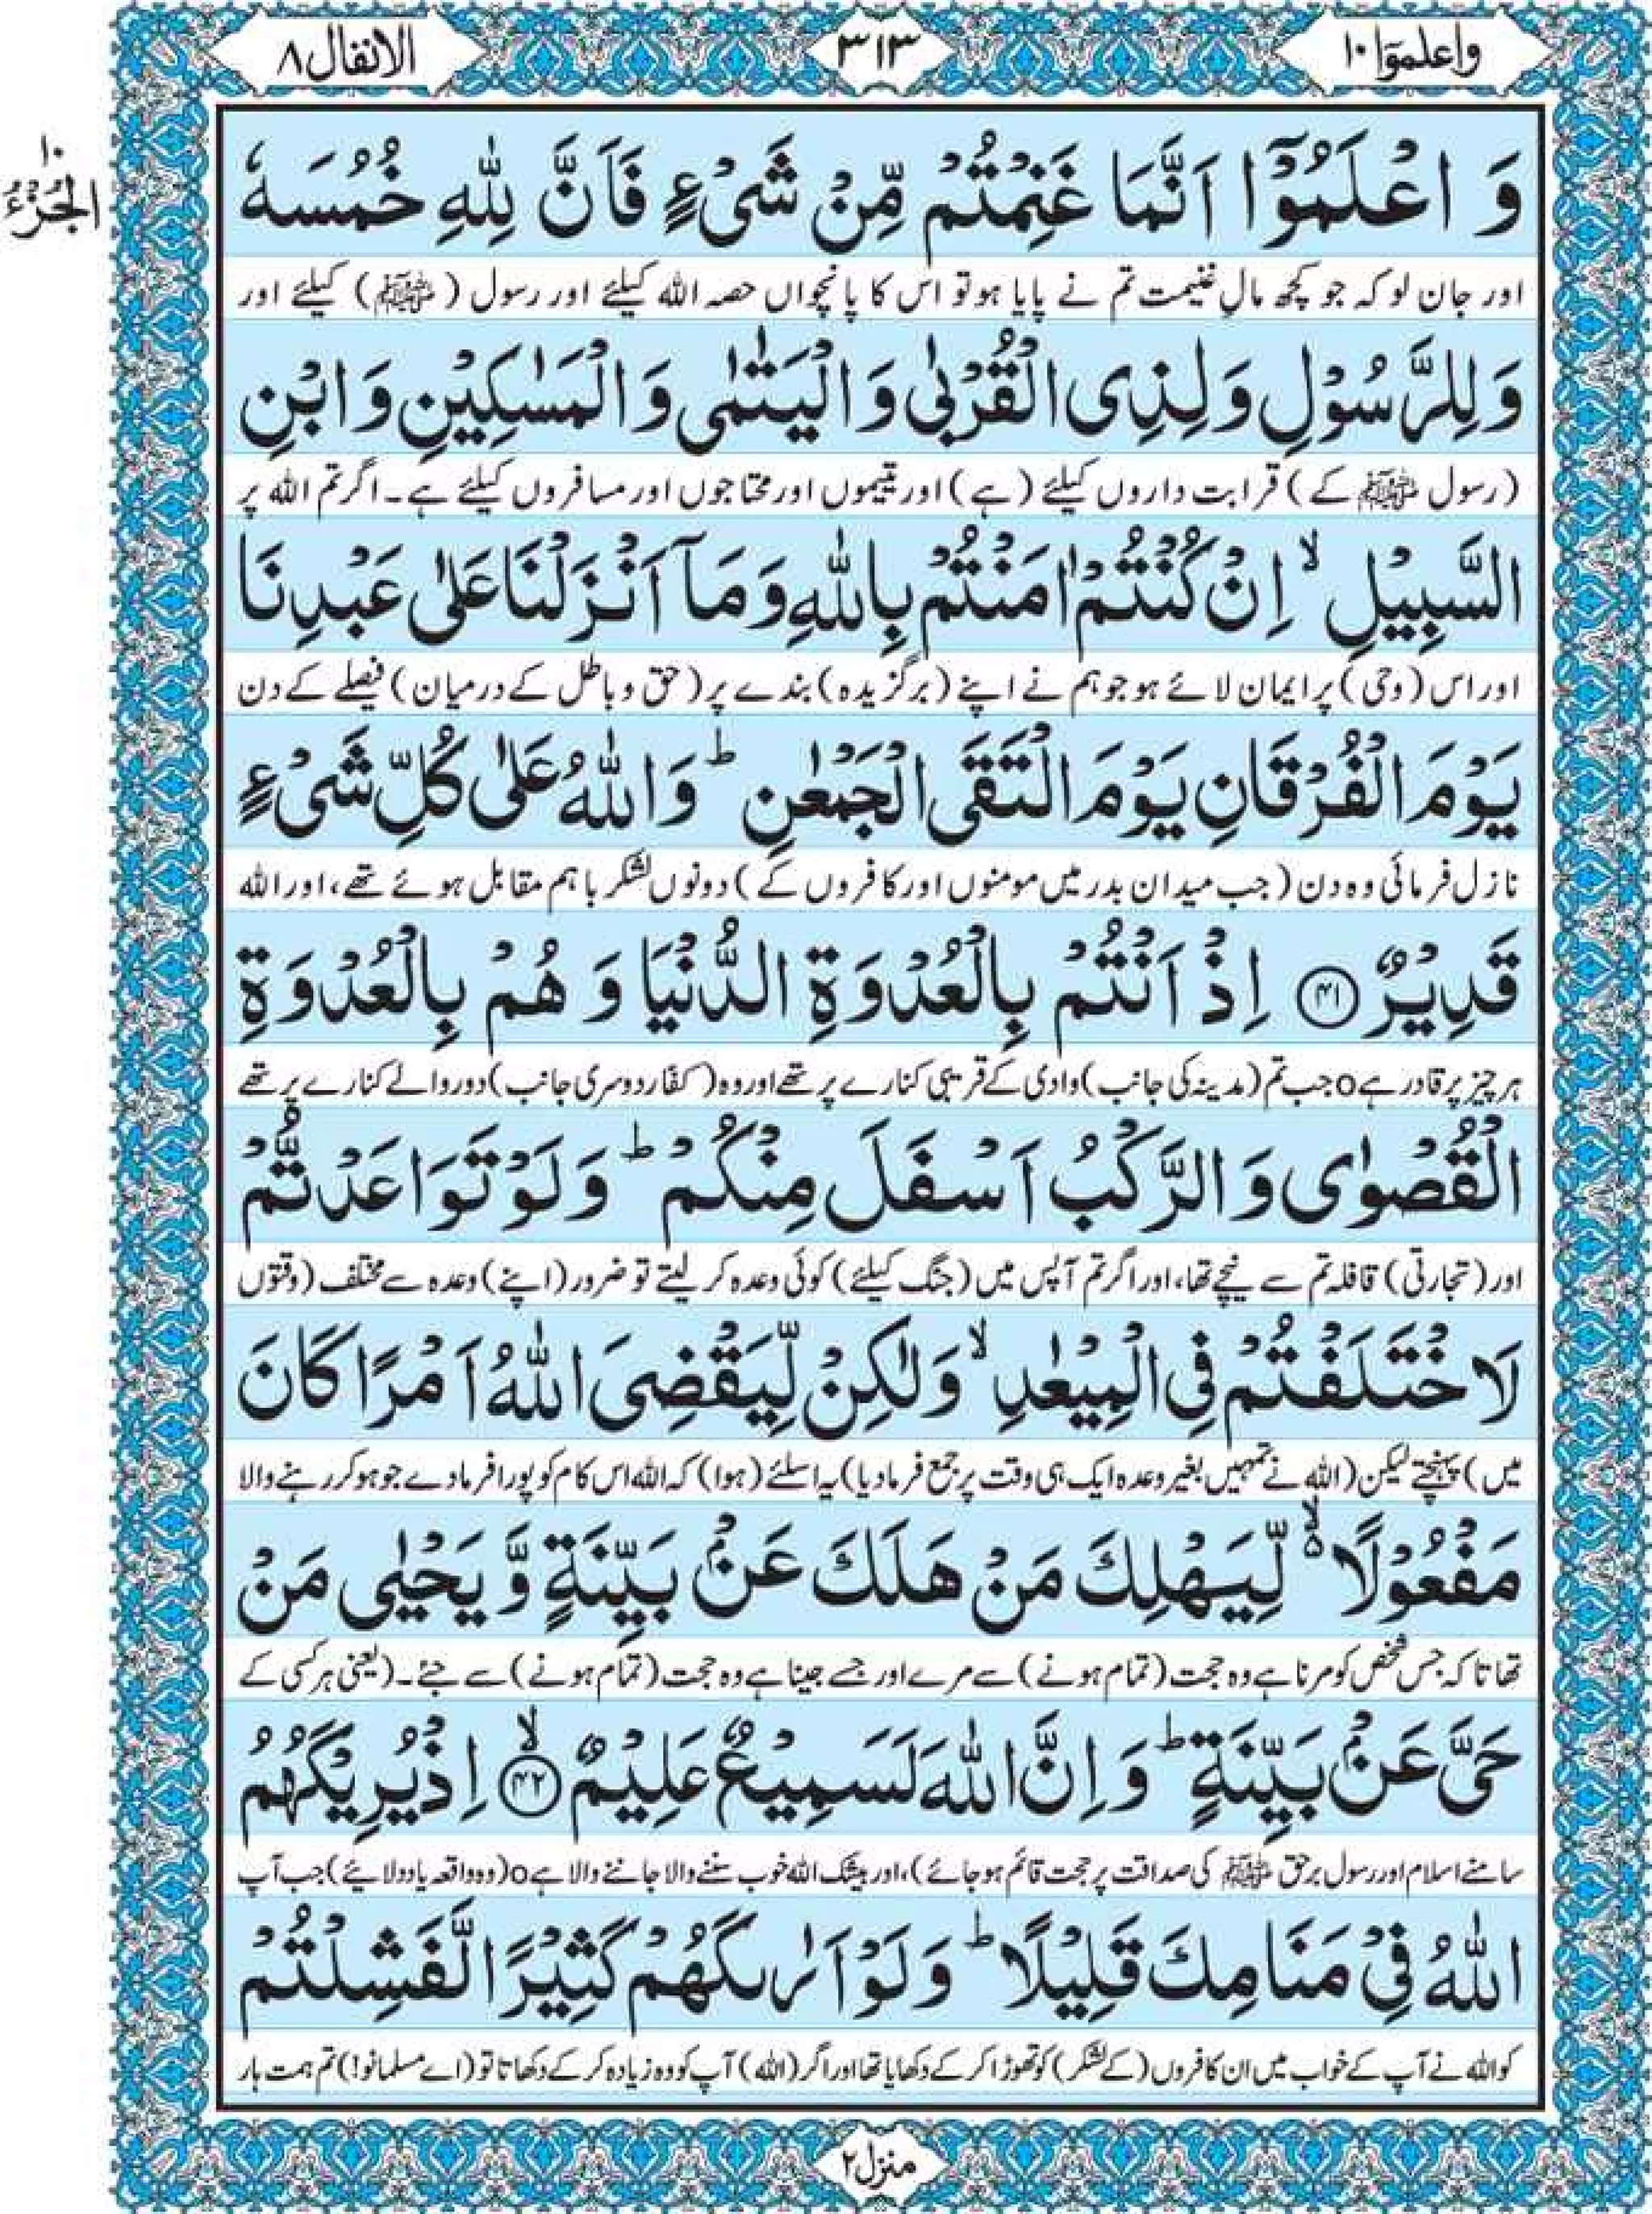 واعلموٓا ۱۰
۳۱۳
الانفال ۸
۱۰
الجُزْءُ
وَ اعْلَمُوْۤا اَنَّمَا غَنِمْتُمْ مِّنْ شَیْءٍ فَاَنَّ لِلّٰهِ خُمُسَهٗ
اور جان لو کہ جو کچھ مالِ غنیمت تم نے پایا ہو تو اس کا پانچواں حصہ اللہ کیلئے اور رسول (ﷺ) کیلئے اور
وَ لِلرَّسُوْلِ وَ لِذِی الْقُرْبٰی وَ الْیَتٰمٰی وَ الْمَسٰكِیْنِ وَ ابْنِ
(رسول ﷺ کے) قرابت داروں کیلئے (ہے) اور یتیموں اور محتاجوں اور مسافروں کیلئے ہے۔ اگر تم اللہ پر
السَّبِیْلِ ۙ اِنْ كُنْتُمْ اٰمَنْتُمْ بِاللّٰهِ وَ مَاۤ اَنْزَلْنَا عَلٰی عَبْدِنَا
اور اس (وحی) پر ایمان لائے ہو جو ہم نے اپنے (برگزیدہ) بندے پر (حق و باطل کے درمیان) فیصلے کے دن
یَوْمَ الْفُرْقَانِ یَوْمَ الْتَقَی الْجَمْعٰنِ ؕ وَ اللّٰهُ عَلٰی كُلِّ شَیْءٍ
نازل فرمائی وہ دن (جب میدان بدر میں مومنوں اور کافروں کے) دونوں لشکر باہم مقابل ہوئے تھے، اور اللہ
قَدِیْرٌ ﴿۴۱﴾ اِذْ اَنْتُمْ بِالْعُدْوَةِ الدُّنْیَا وَ هُمْ بِالْعُدْوَةِ
ہر چیز پر قادر ہے o جب تم (مدینہ کی جانب) وادی کے قریبی کنارے پر تھے اور وہ (کفّار دوسری جانب) دور والے کنارے پر تھے
الْقُصْوٰی وَ الرَّكْبُ اَسْفَلَ مِنْكُمْ ؕ وَ لَوْ تَوَاعَدْتُّمْ
اور (تجارتی) قافلہ تم سے نیچے تھا، اور اگر تم آپس میں (جنگ کیلئے) کوئی وعدہ کر لیتے تو ضرور (اپنے) وعدہ سے مختلف (وقتوں
لَاخْتَلَفْتُمْ فِی الْمِیْعٰدِ ۙ وَ لٰكِنْ لِّیَقْضِیَ اللّٰهُ اَمْرًا كَانَ
میں) پہنچتے لیکن (اللہ نے تمہیں بغیر وعدہ ایک ہی وقت پر جمع فرما دیا) یہ اسلئے (ہوا) کہ اللہ اس کام کو پورا فرما دے جو ہو کر رہنے والا
مَفْعُوْلًا ۙ۬ لِّیَهْلِكَ مَنْ هَلَكَ عَنْۢ بَیِّنَةٍ وَّ یَحْیٰی مَنْ
تھا تاکہ جس شخص کو مرنا ہے وہ حجت (تمام ہونے) سے مرے اور جسے جینا ہے وہ حجت (تمام ہونے) سے جئے۔ (یعنی ہر کسی کے
حَیَّ عَنْۢ بَیِّنَةٍ ؕ وَ اِنَّ اللّٰهَ لَسَمِیْعٌ عَلِیْمٌ ۙ﴿۴۲﴾ اِذْ یُرِیْكَهُمُ
سامنے اسلام اور رسول برحق ﷺ کی صداقت پر حجت قائم ہو جائے)، اور بیشک اللہ خوب سننے والا جاننے والا ہے o (وہ واقعہ یاد دلائیے) جب آپ
اللّٰهُ فِیْ مَنَامِكَ قَلِیْلًا ؕ وَ لَوْ اَرٰىكَهُمْ كَثِیْرًا لَّفَشِلْتُمْ
کو اللہ نے آپ کے خواب میں ان کافروں (کے لشکر) کو تھوڑا کر کے دکھایا تھا اور اگر (اللہ) آپ کو وہ زیادہ کر کے دکھاتا تو (اے مسلمانو!) تم ہمت ہار
منزل ۲